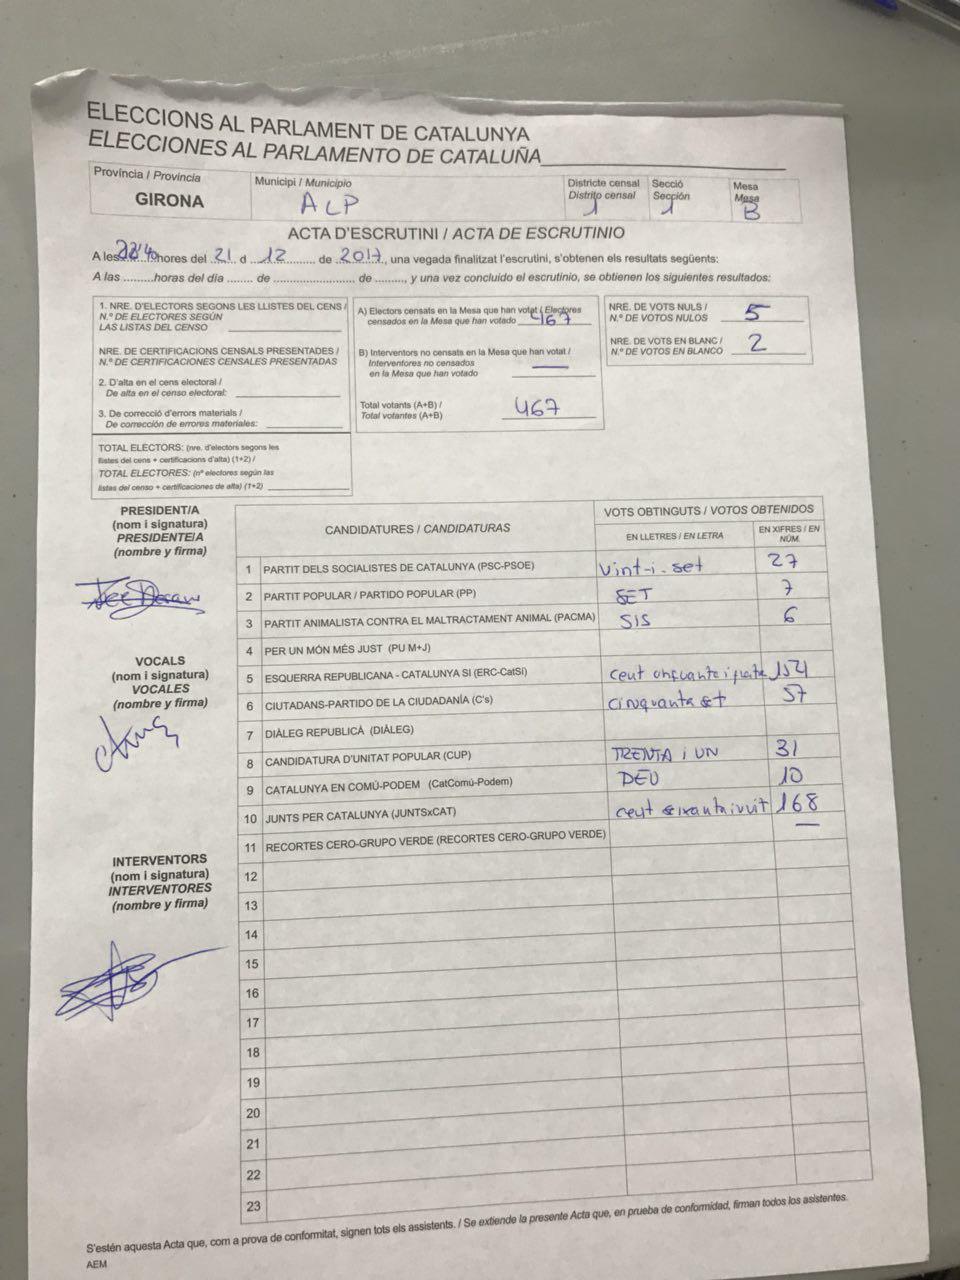 ELECCIONS AL PARLAMENT DE CATALUNYA
ELECCIONES AL PARLAMENTO DE CATALUÑA
Província / Provincia
GIRONA
Municipi / Municipio
ALP
Districte censal
Distrito censal
1
Secció
Sección
1
Mesa
Mesa
B
ACTA D'ESCRUTINI / ACTA DE ESCRUTINIO
A les 22'40 hores del 21 d 12 de 2017, una vegada finalitzat l'escrutini, s'obtenen els resultats següents:
A las ......... horas del día ....... de ........................ de ........, y una vez concluido el escrutinio, se obtienen los siguientes resultados:
1. NRE. D'ELECTORS SEGONS LES LLISTES DEL CENS /
N.º DE ELECTORES SEGÚN
LAS LISTAS DEL CENSO
NRE. DE CERTIFICACIONS CENSALS PRESENTADES /
N.º DE CERTIFICACIONES CENSALES PRESENTADAS
2. D'alta en el cens electoral /
De alta en el censo electoral:
3. De correcció d'errors materials /
De corrección de errores materiales:
TOTAL ELECTORS: (nre. d'electors segons les
llistes del cens + certificacions d'alta) (1+2) /
TOTAL ELECTORES: (nº electores según las
listas del censo + certificaciones de alta) (1+2)
A) Electors censats en la Mesa que han votat / Electores
censados en la Mesa que han votado 467
B) Interventors no censats en la Mesa que han votat /
Interventores no censados
en la Mesa que han votado —
Total votants (A+B) /
Total votantes (A+B) 467
NRE. DE VOTS NULS /
N.º DE VOTOS NULOS 5
NRE. DE VOTS EN BLANC /
N.º DE VOTOS EN BLANCO 2
PRESIDENT/A
(nom i signatura)
PRESIDENTE/A
(nombre y firma)
VOCALS
(nom i signatura)
VOCALES
(nombre y firma)
INTERVENTORS
(nom i signatura)
INTERVENTORES
(nombre y firma)
CANDIDATURES / CANDIDATURAS
VOTS OBTINGUTS / VOTOS OBTENIDOS
EN LLETRES / EN LETRA
EN XIFRES / EN NÚM.
1 PARTIT DELS SOCIALISTES DE CATALUNYA (PSC-PSOE) Vint-i-set 27
2 PARTIT POPULAR / PARTIDO POPULAR (PP) SET 7
3 PARTIT ANIMALISTA CONTRA EL MALTRACTAMENT ANIMAL (PACMA) SIS 6
4 PER UN MÓN MÉS JUST (PU M+J)
5 ESQUERRA REPUBLICANA - CATALUNYA SI (ERC-CatSí) cent cinquanta i 154
6 CIUTADANS-PARTIDO DE LA CIUDADANÍA (C's) cinquanta set 57
7 DIÀLEG REPUBLICÀ (DIÀLEG)
8 CANDIDATURA D'UNITAT POPULAR (CUP) TRENTA i UN 31
9 CATALUNYA EN COMÚ-PODEM (CatComú-Podem) DEU 10
10 JUNTS PER CATALUNYA (JUNTSxCAT) cent seixanta i vuit 168
11 RECORTES CERO-GRUPO VERDE (RECORTES CERO-GRUPO VERDE) —
12
13
14
15
16
17
18
19
20
21
22
23
S'estén aquesta Acta que, com a prova de conformitat, signen tots els assistents. / Se extiende la presente Acta que, en prueba de conformidad, firman todos los asistentes.
AEM